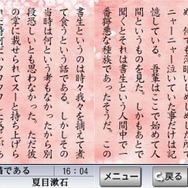 ニャーニャー泣いていた事だけは記
憶している。吾輩はここで始めて人
間というものを見た。しかもあとで
聞くとそれは書生という人間中で一
番獰悪な種族であったそうだ。この
書生というのは時々我々を捕えて煮
て食うという話である。しかしその
当時は何という考もなかったから別
段恐しいとも思わなかった。ただ彼
の掌に載せられてスーと持ち上げら
である 16:04
夏目漱石
メニュー
戻る